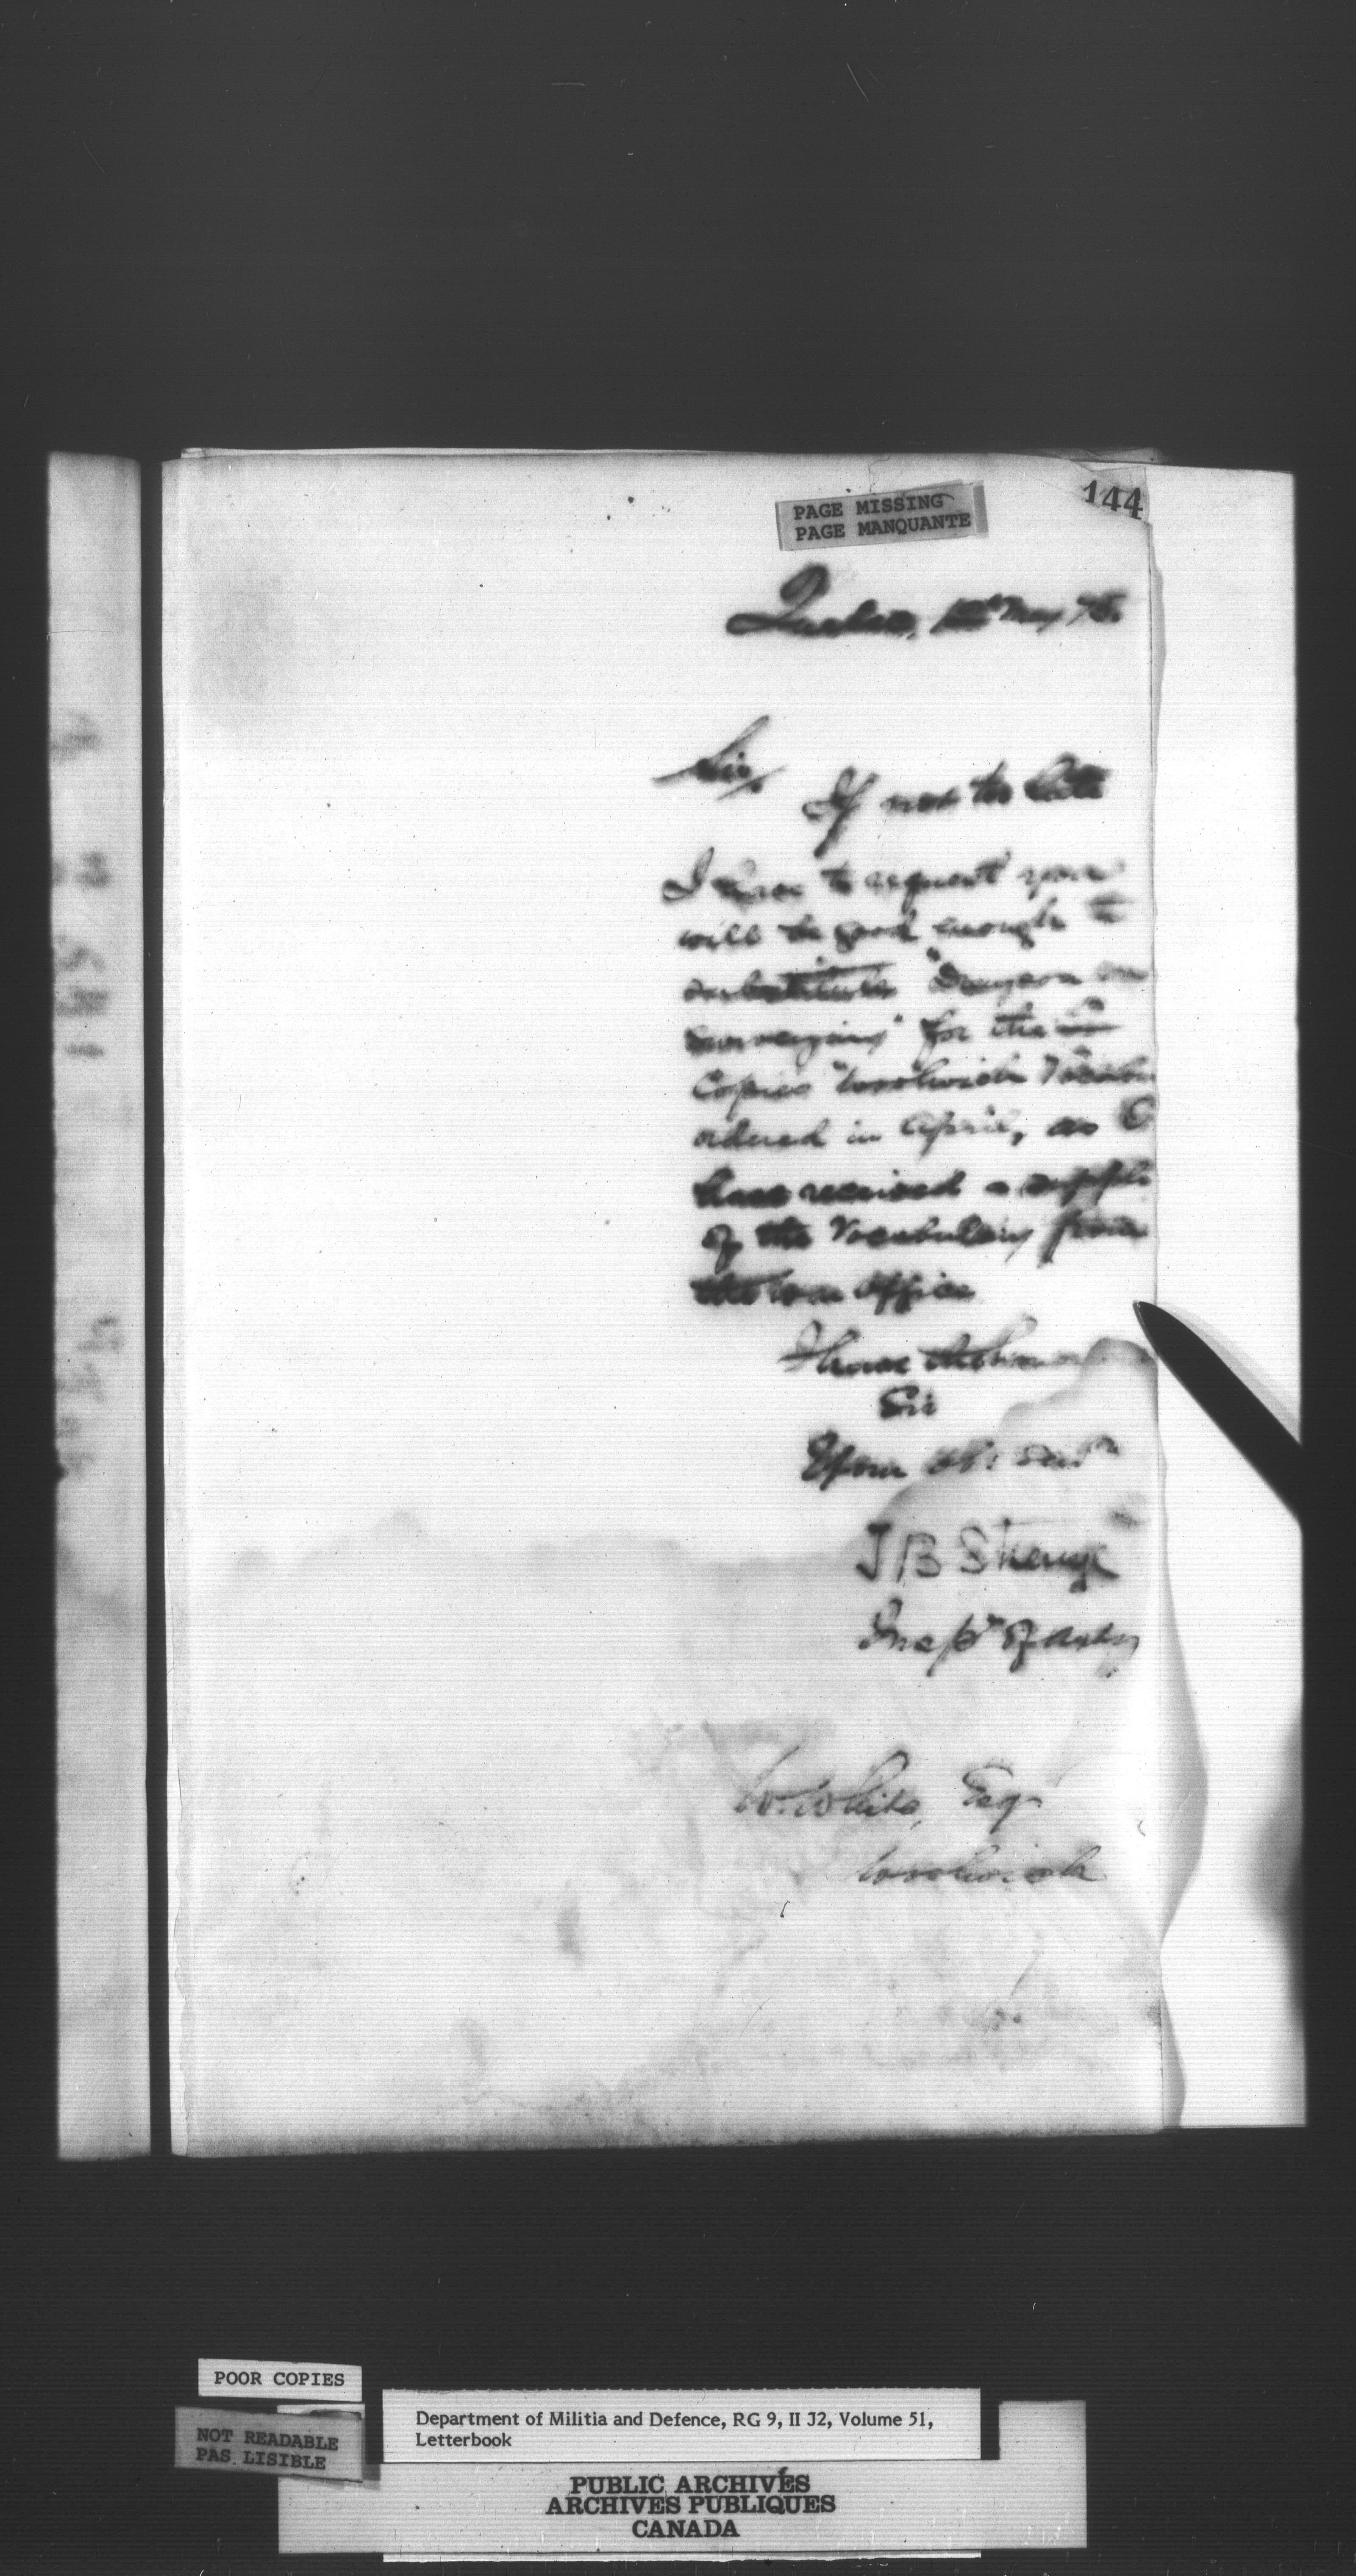 144
PAGE MISSING
PAGE MANQUANTE
Quebec, 12th May 75.
Sir,
If not too late
I have to request you
will be good enough to
substitute "Drayson on
Surveying" for the
Copies "Woolwich Vocabu
ordered in April, as
have received a suppl
of the Vocabulary from
the War Office
I have the hono
Sir
Your ob: serv
T B Strange
Insp of Arty
W. White, Esq
Woolwich
POOR COPIES
NOT READABLE
PAS LISIBLE
Department of Militia and Defence, RG 9, II J2, Volume 51,
Letterbook
PUBLIC ARCHIVES
ARCHIVES PUBLIQUES
CANADA